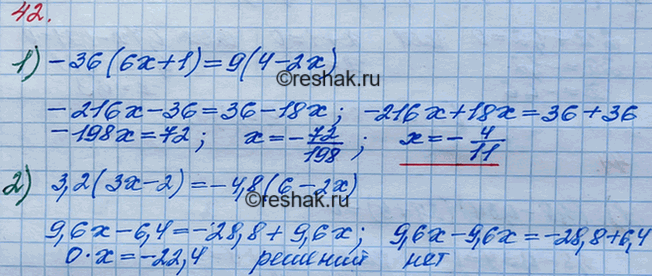 42.
1) -36(6x+1)=9(4-2x)
©reshak.ru
-216x-36=36-18x; -216x+18x=36+36
-198x=72; x=-72/198; x=-4/11
2) 3,2(3x-2)=-4,8(6-2x)
©reshak.ru
9,6x-6,4=-28,8+9,6x; 9,6x-9,6x=-28,8+6,4
0·x=-22,4 решений нет